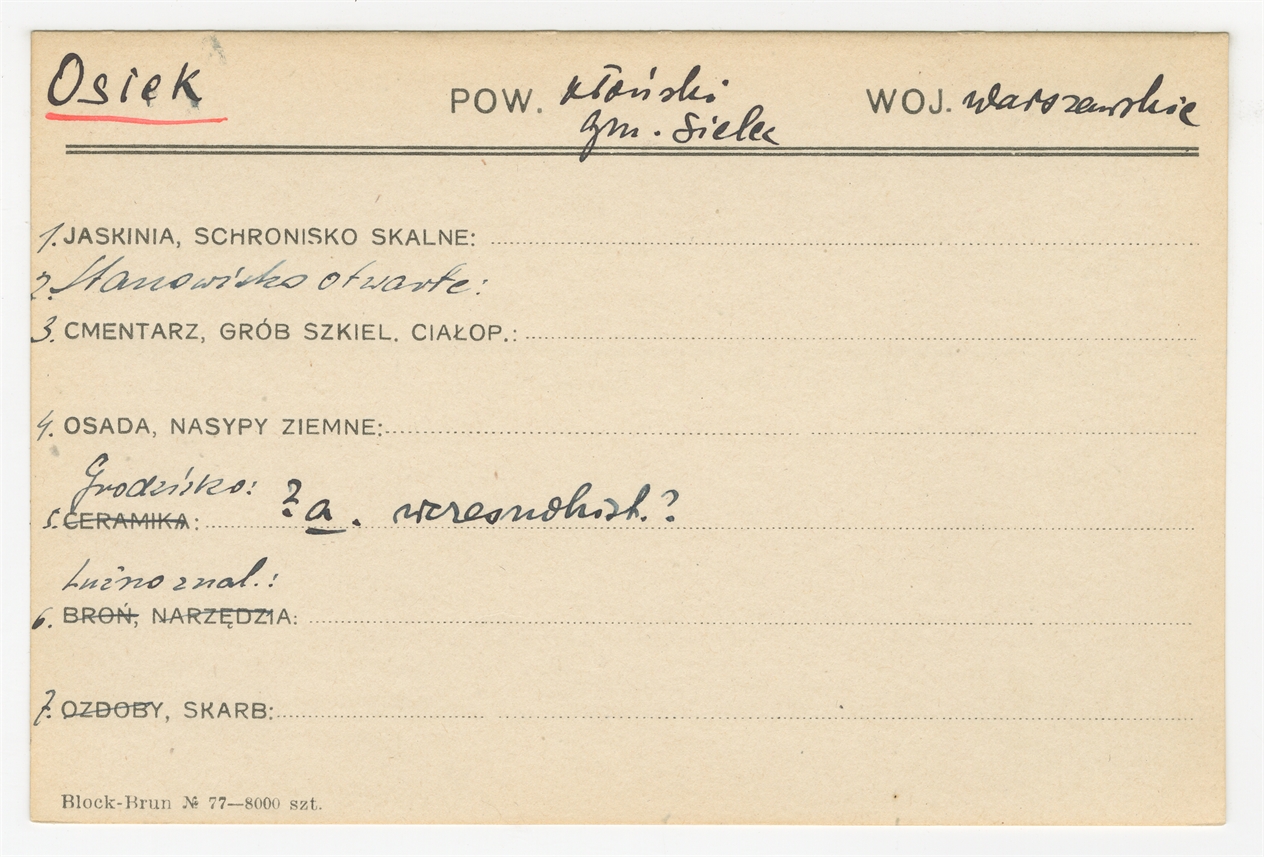 Osiek
POW. płoński WOJ. warszawskie
gm. Sielec
1. JASKINIA, SCHRONISKO SKALNE:
2. Stanowisko otwarte:
3. CMENTARZ, GRÓB SZKIEL. CIAŁOP.:
4. OSADA, NASYPY ZIEMNE:
Grodzisko: ? a. wczesnohist.?
5. CERAMIKA:
Luźno znal.:
6. BROŃ, NARZĘDZIA:
7. OZDOBY, SKARB:
Block-Brun № 77—8000 szt.